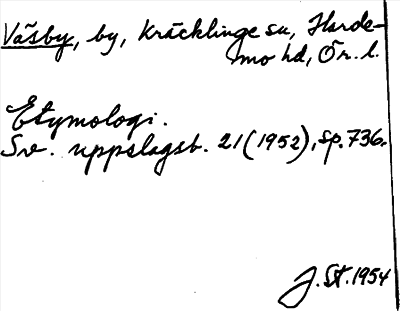 Väsby, by, Kräcklinge sn, Harde-
mo hd, Ör. l.
Etymologi.
Sv. uppslagsb. 21 (1952), sp. 736.
J. St. 1954